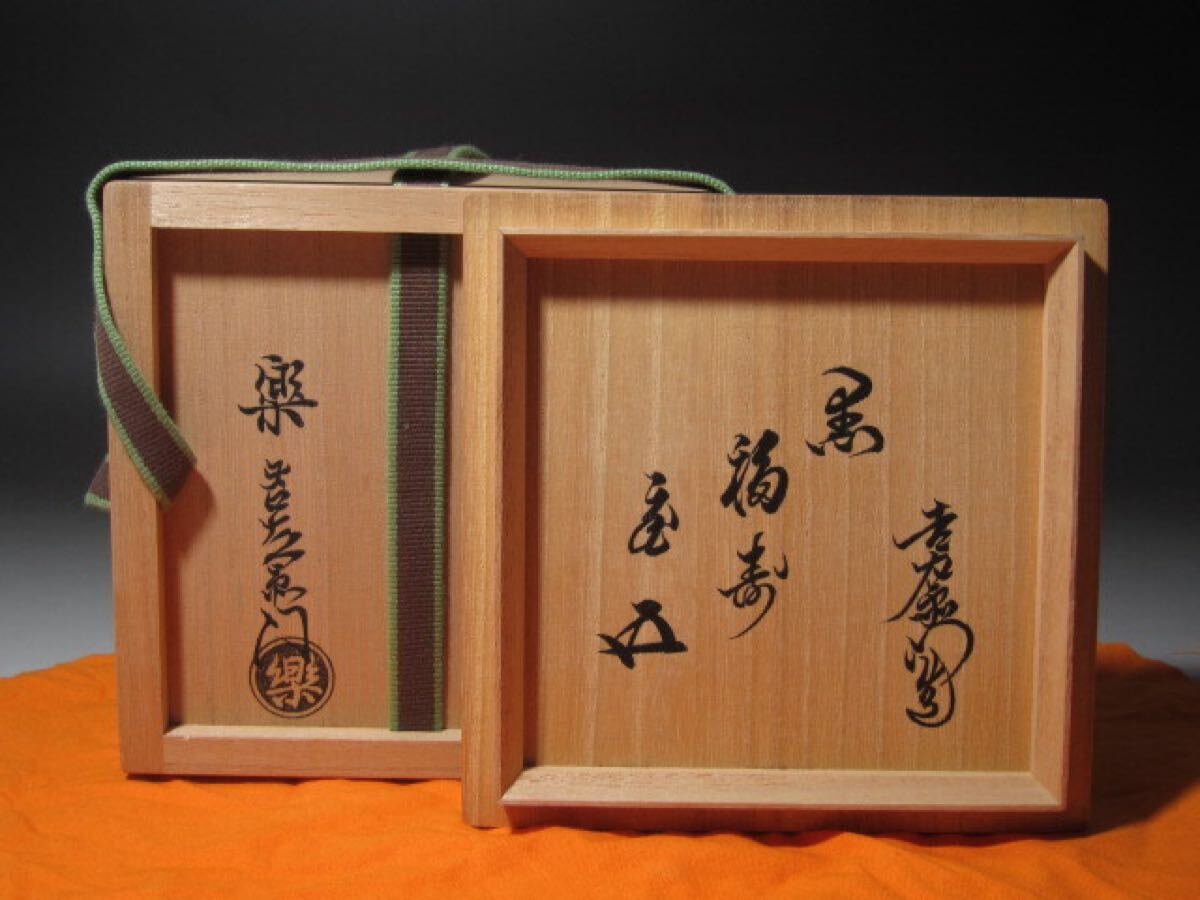 吉左衛門造
黒
福寿
室
樂 吉左衛門
樂